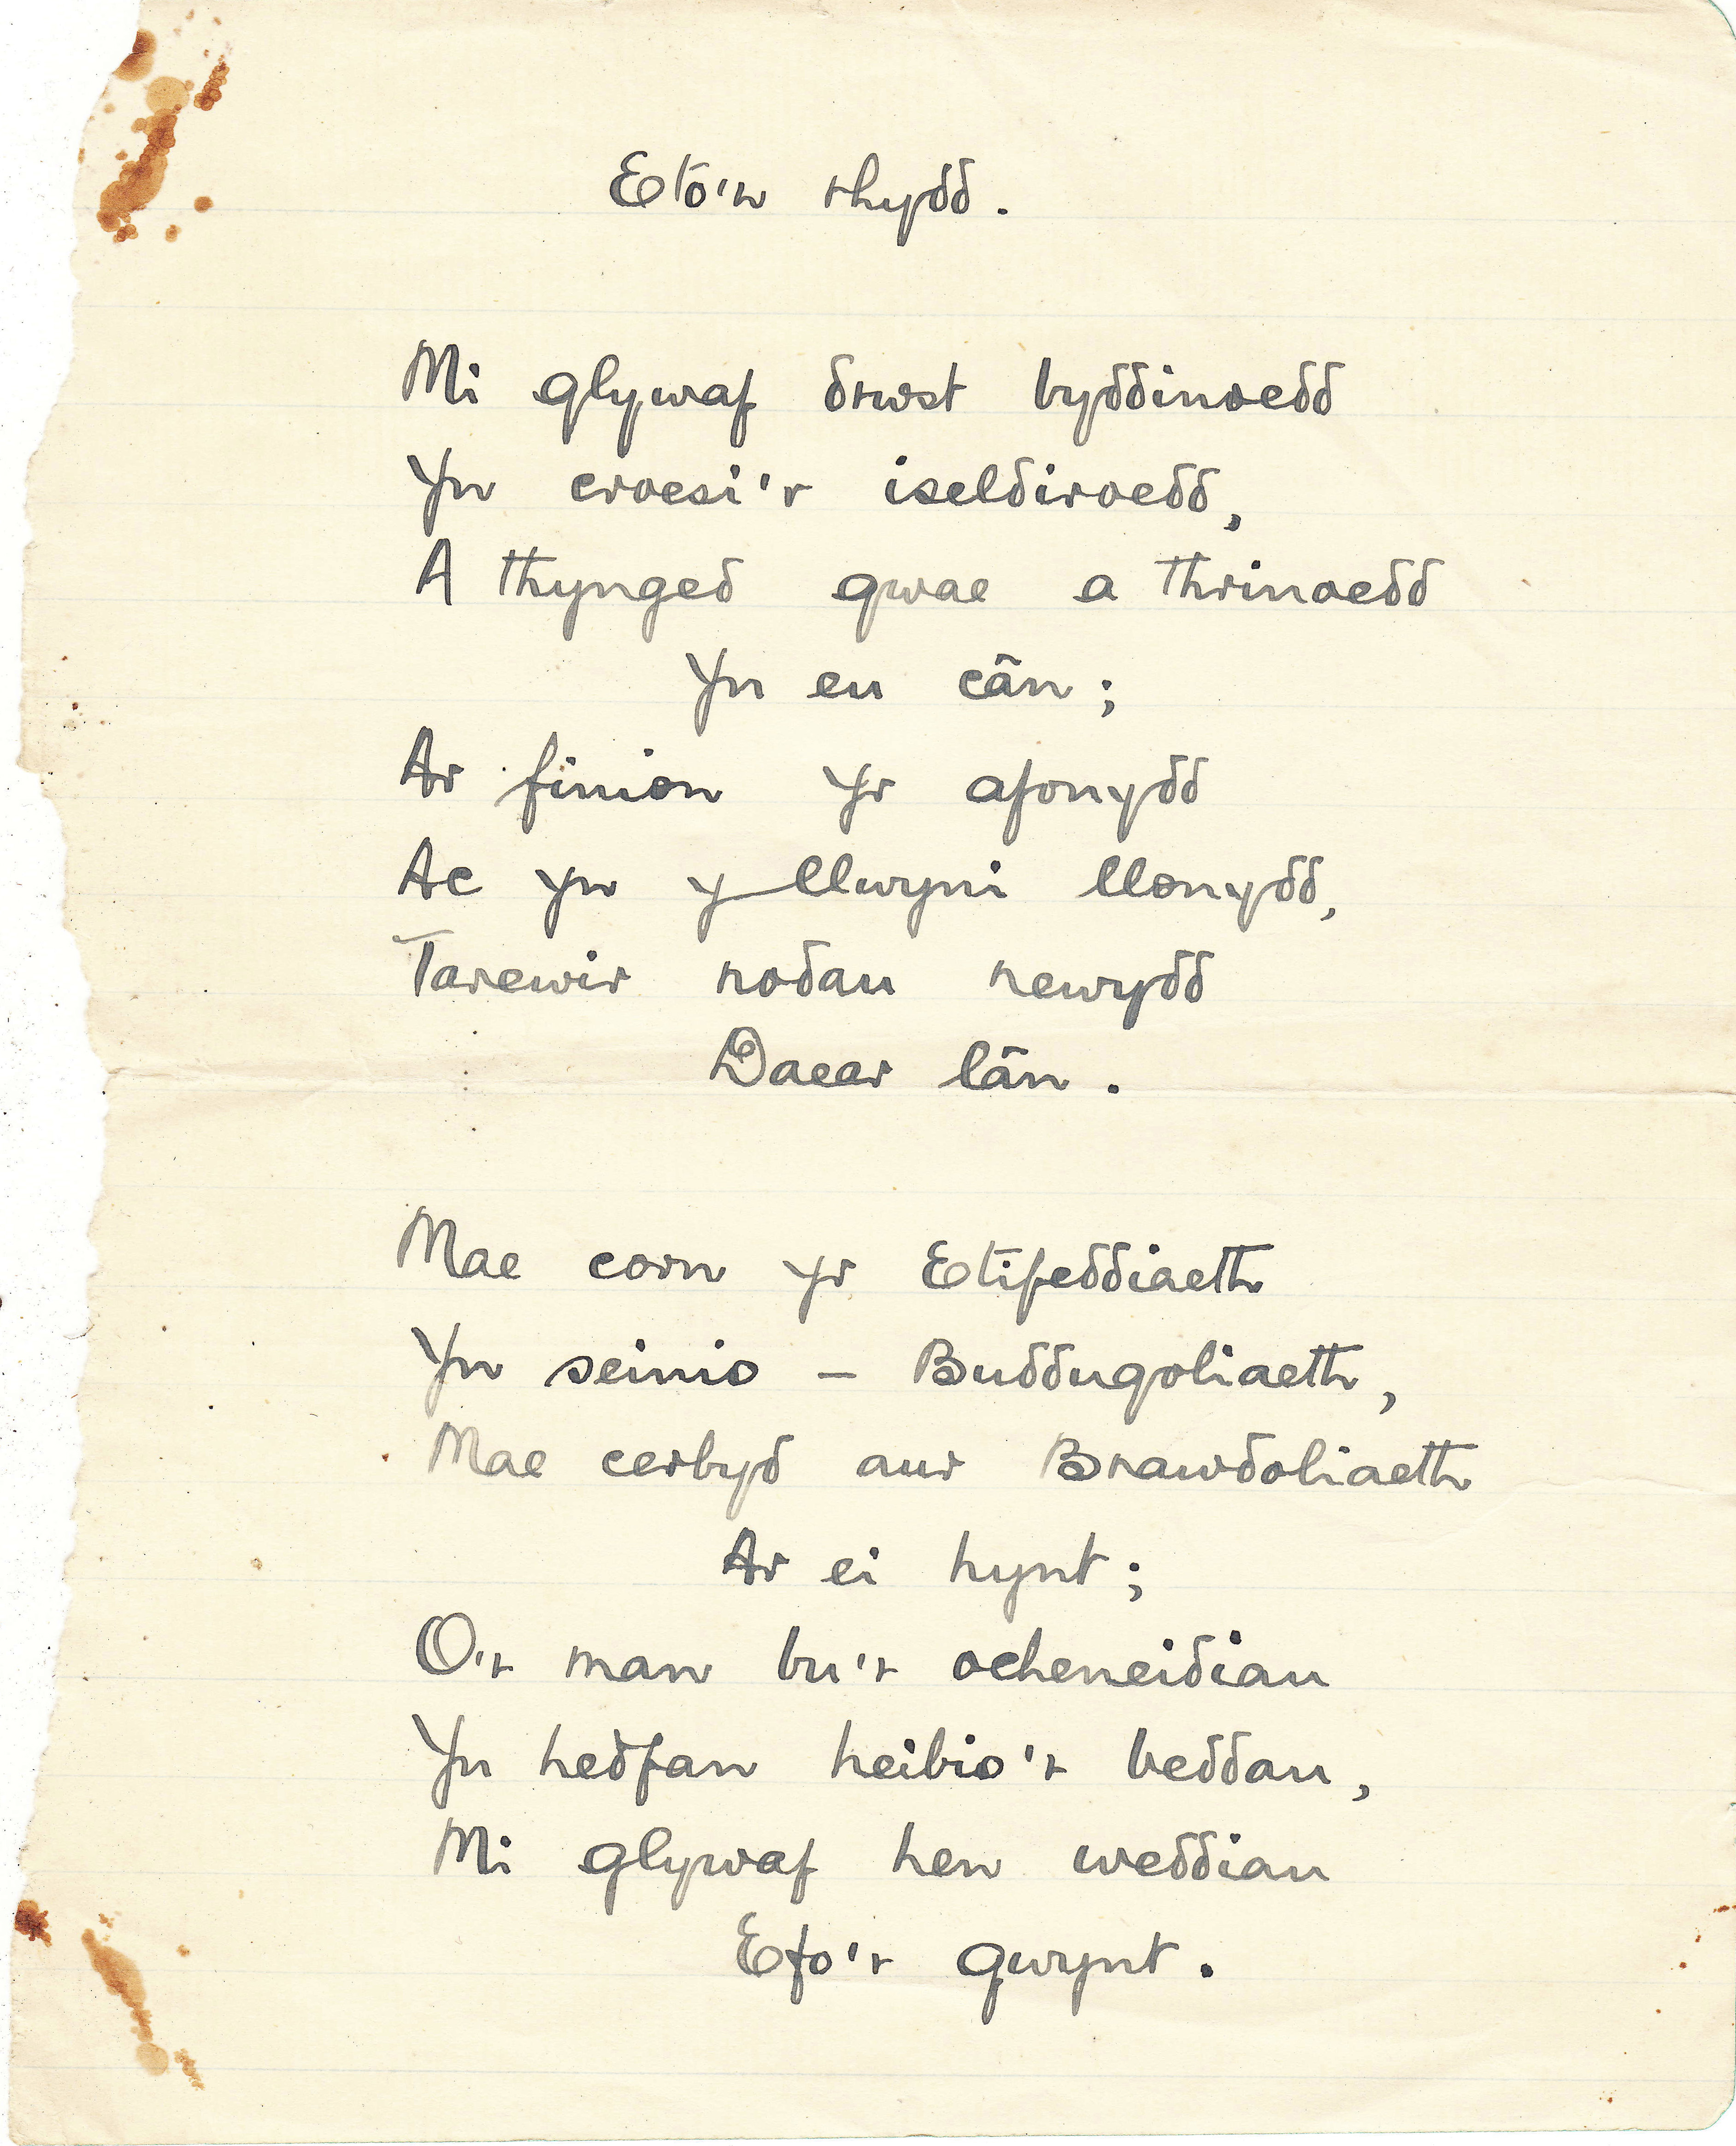 Eto'n rhydd.
Mi glywaf drwst byddinoedd
Yn croesi'r iseldiroedd,
A thynged gwae a thrinoedd
Yn eu cân;
Ar finion yr afonydd
Ac yn y llwyni llonydd,
Tarewir nodau newydd
Daear lân.
Mae corn yr Etifeddiaeth
Yn seinio – Buddugoliaeth,
Mae cerbyd aur Brawdoliaeth
Ar ei hynt;
O'r man bu'r ocheneidiau
Yn hedfan heibio'r beddau,
Mi glywaf hen weddiau
Efo'r gwynt.